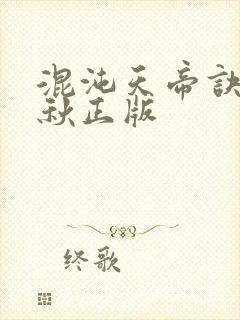 混沌天帝诀
秋正版
终歌